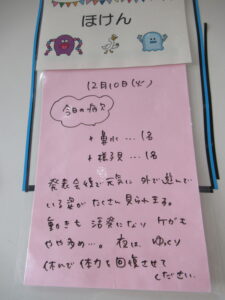 ほけん
12月10日(火)
今日の病欠
+ 鼻水 … 1名
+ 様子見 … 1名
発表会後で元気に外で遊んで
いる姿がたくさん見られます。
動きも活発になりケガも
やや多め…。夜は、ゆっくり
休んで体力を回復させて
ください。